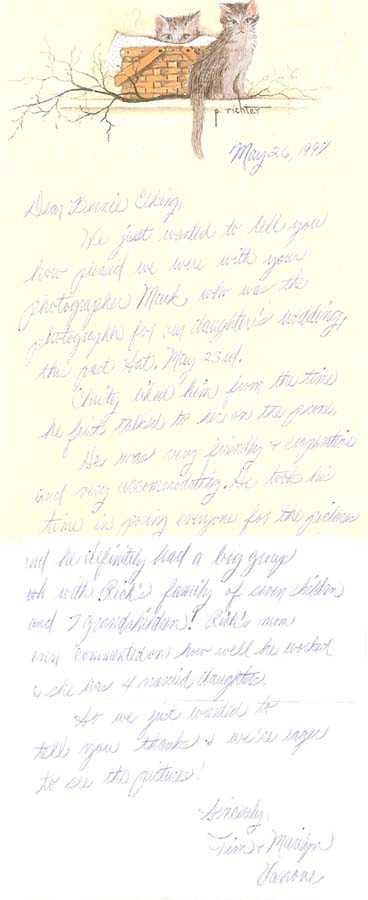 p. richter
May 26, 1998
Dear Bernie Elking,
We just wanted to tell you
how pleased we were with your
photographer Mark who was the
photographer for our daughter's wedding,
this past Sat. May 23rd.
Christy liked him from the time
he first talked to her on the phone.
He was very friendly + cooperative
and very accommodating. He took his
time in posing everyone for the pictures
and he definitely had a big group
with Rick's family of seven children
and 7 grandchildren! Rick's mom
even commented on how well he worked
& she has 4 married daughters.
So we just wanted to
tell you thanks & we're eager
to see the pictures!
Sincerely,
Tim + Marilyn